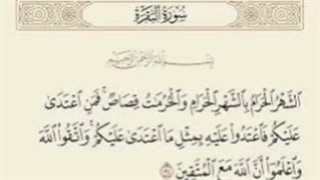 سُورَةُ البَقَرَةِ
بِسْمِ اللَّهِ الرَّحْمَنِ الرَّحِيمِ
الشَّهْرُ الْحَرَامُ بِالشَّهْرِ الْحَرَامِ وَالْحُرُمَاتُ قِصَاصٌ ۚ فَمَنِ اعْتَدَىٰ
عَلَيْكُمْ فَاعْتَدُوا عَلَيْهِ بِمِثْلِ مَا اعْتَدَىٰ عَلَيْكُمْ ۚ وَاتَّقُوا اللَّهَ
وَاعْلَمُوا أَنَّ اللَّهَ مَعَ الْمُتَّقِينَ